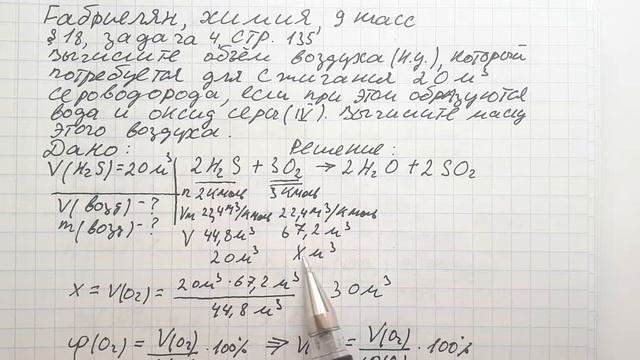 Габриелян, химия, 9 класс
§ 18, задача 4, стр. 135
Вычислите объём воздуха (н.у.), который
потребуется для сжигания 20 м³
сероводорода, если при этом образуются
вода и оксид серы (IV). Вычислите массу
этого воздуха.
Дано: Решение:
V(H₂S)=20м³ 2H₂S + 3O₂ → 2H₂O + 2SO₂
n 2кмоль 3кмоль
V(возд)-? Vm 22,4м³/кмоль 22,4м³/кмоль
m(возд)-? V 44,8м³ 67,2м³
20м³ Xм³
X = V(O₂) = 20м³·67,2м³ / 44,8м³ 30м³
φ(O₂) = V(O₂) ·100% ⇒ V = V(O₂) ·100%